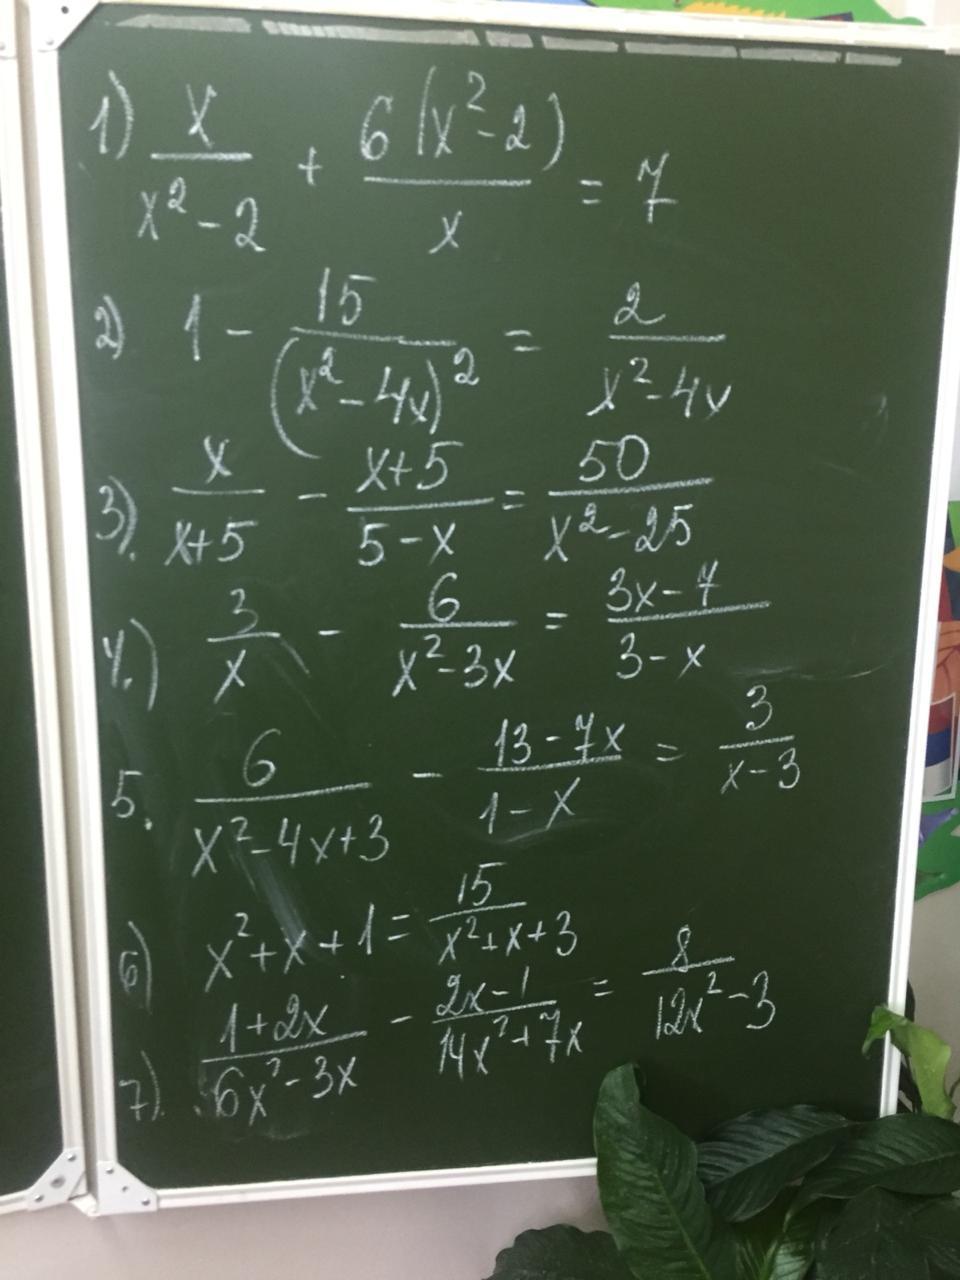 1) x/(x²-2) + 6(x²-2)/x = 7
2) 1 - 15/(x²-4x)² = 2/(x²-4x)
3). x/(x+5) - (x+5)/(5-x) = 50/(x²-25)
4.) 3/x - 6/(x²-3x) = (3x-7)/(3-x)
5. 6/(x²-4x+3) - (13-7x)/(1-x) = 3/(x-3)
6) x²+x+1 = 15/(x²+x+3)
7). (1+2x)/(6x²-3x) - (2x-1)/(14x²+7x) = 8/(12x²-3)